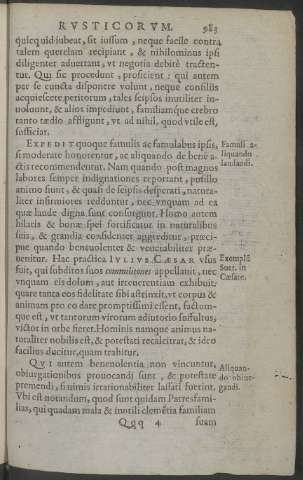 RVSTICORVM. 983
quicquid iubeat, sit iussum, neque facile contra
talem querelam recipiant, & nihilominus ipsi
diligenter aduertant, vt negotia debitè tracten-
tur. Qui sic procedunt, proficient: qui autem
per se cuncta disponere volunt, neque consiliis
acquiescere peritorum, tales seipsos inutiliter in-
uoluunt, & alios impediunt, familiamque crebro
tanto tædio affligunt, vt ad nihil, quod vtile est,
sufficiat.
EXPEDIT quoque famulis ac famulabus ipsis,
si moderate honorentur, ac aliquando de bene a-
ctis recommendentur. Nam quando post magnos
labores semper indignationes reportant, pusillo
animo fiunt, & quasi de seipsis desperati, natura-
liter infirmiores redduntur, nec vnquam ad ea
quæ laude digna sunt consurgunt. Homo autem
hilaris & bonæ spei fortificatur in naturalibus
suis, & grandia confidenter aggreditur, præci-
pue quando beneuolenter & venerabiliter præ-
uenitur. Hac practica IVLIVS CÆSAR vsus
fuit, qui subditos suos commilitones appellauit, nec
vnquam eis dolum, aut irreuerentiam exhibuit:
quare tanta eos fidelitate sibi astrinxit, vt corpus &
animam pro eo dare promptissimi essent, factum-
que est, vt tantorum virorum adiutorio suffultus,
victor in orbe fieret. Hominis namque animus na-
turaliter nobilis est, & potestati recalcitrat, & ideo
facilius ducitur, quam trahitur.
QVI autem beneuolentia non vincuntur,
obiurgationibus prouocandi sunt, & potestate
premendi, si nimis irrationabiliter lassati fuerint.
Vbi est notandum, quod sunt quidam Patresfami-
lias, qui quadam mala & inutili clemētia familiam
Qqq 4 suam
Famuli a-
liquando
laudandi.
Exemplū
Suet. in
Cæsare.
Aliquan-
do obiur-
gandi.